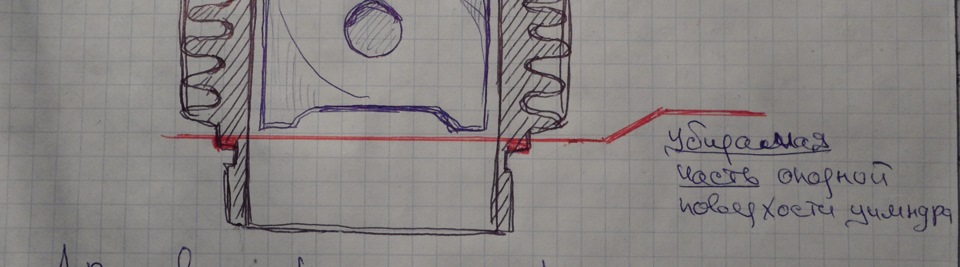 убираемая
часть опорной
поверхости цилиндра